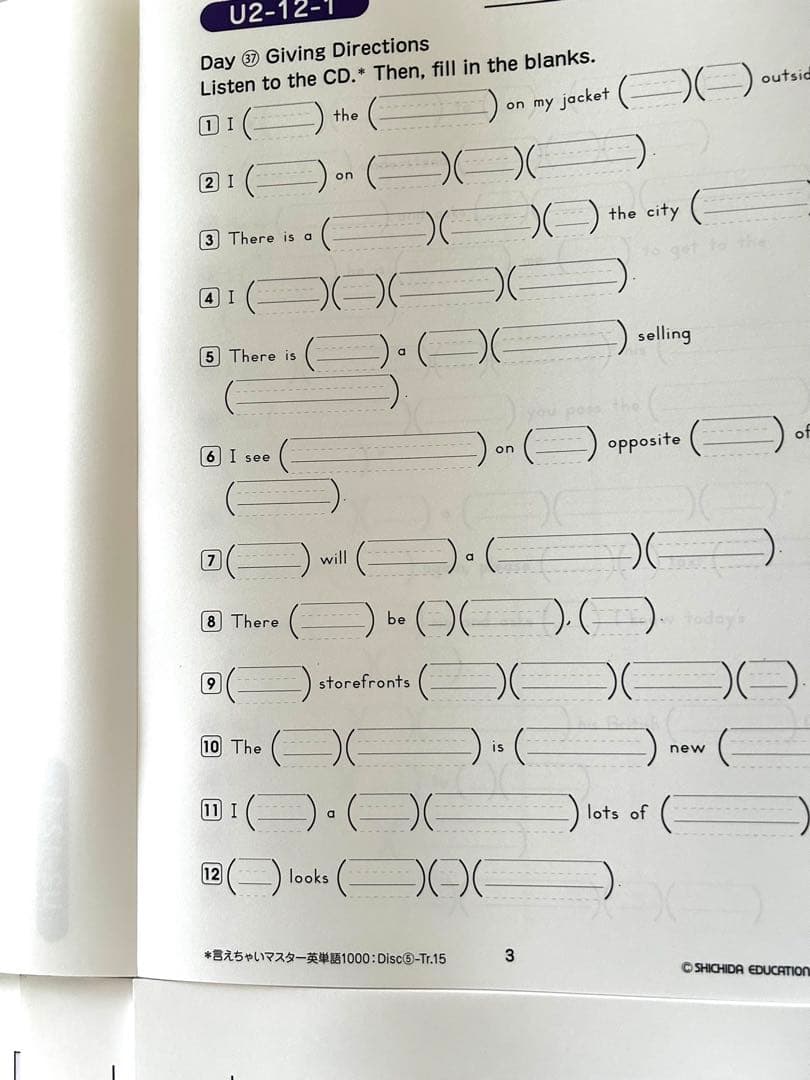 U2-12-1
Day ㊲ Giving Directions
Listen to the CD.* Then, fill in the blanks.
1 I ( ) the ( ) on my jacket ( )( ) outsid
2 I ( ) on ( )( )( ).
3 There is a ( )( )( ) the city (
4 I ( )( )( )( ).
5 There is ( ) a ( )( ) selling
( ).
6 I see ( ) on ( ) opposite ( ) of
( ).
7 ( ) will ( ) a ( )( ).
8 There ( ) be ( )( ), ( ).
9 ( ) storefronts ( )( )( )( ).
10 The ( )( ) is ( ) new (
11 I ( ) a ( )( ) lots of ( )
12 ( ) looks ( )( )( ).
*言えちゃいマスター英単語1000:Disc⑤-Tr.15
3
© SHICHIDA EDUCATION